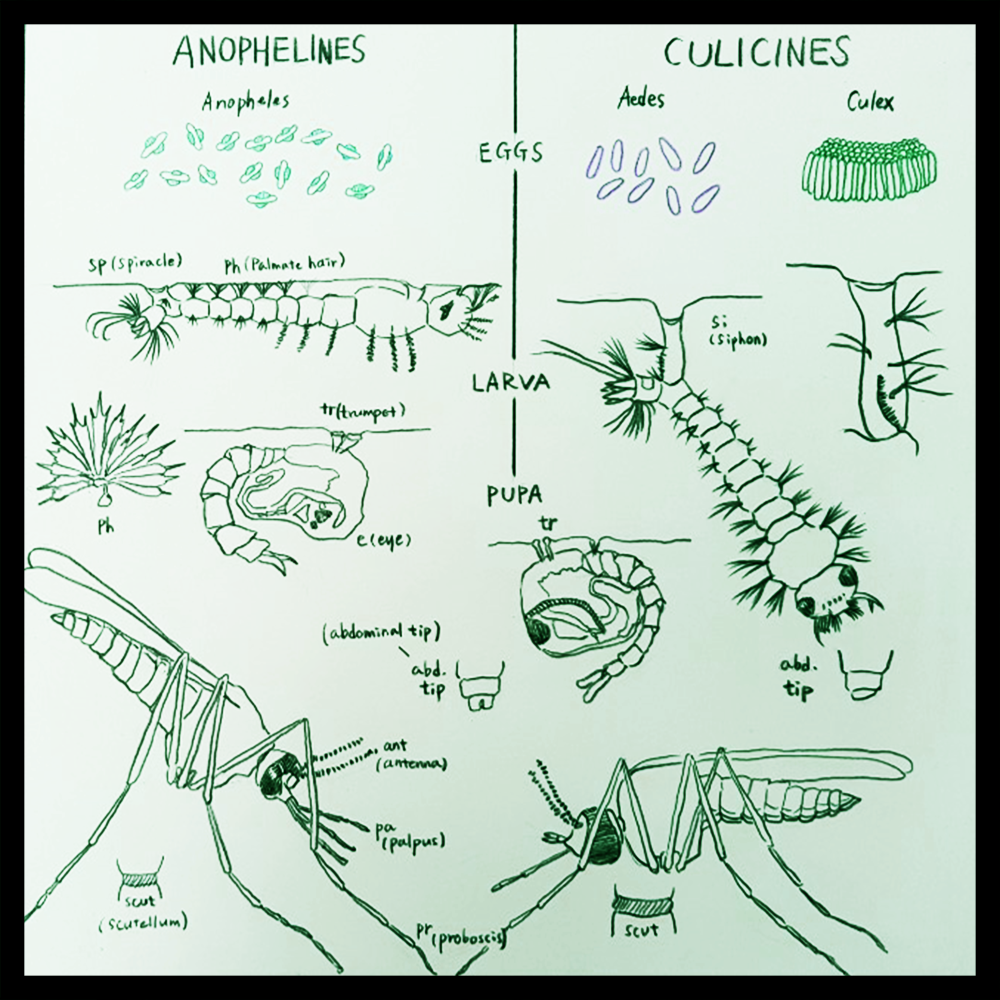 ANOPHELINES
CULICINES
Anopheles
Aedes
Culex
EGGS
SP (Spiracle)
Ph (Palmate hair)
Si
(Siphon)
LARVA
tr(trumpet)
Ph
e(eye)
PUPA
tr
(abdominal tip)
abd.
tip
abd.
tip
ant
(antenna)
pa
(palpus)
scut
(scutellum)
pr(proboscis)
scut